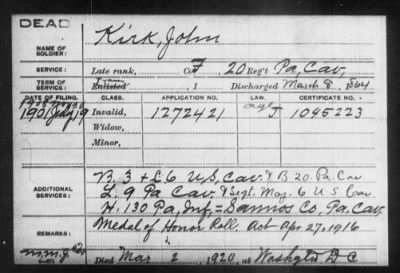 DEAD
NAME OF SOLDIER: Kirk, John
SERVICE: Late rank, Co F, 20 Reg't Pa. Cav.
TERM OF SERVICE: Enlisted , 1 Discharged March 8, 1864
DATE OF FILING. CLASS. APPLICATION NO. LAW. CERTIFICATE NO.
1901 July 9 Invalid, 1272421 age J 1045223
Widow,
Minor,
ADDITIONAL SERVICES: B. 3 + L 6 U.S. Cav. & B 20. Pa. Cav
L. 9 Pa Cav. & Sergt. Maj. 6 U S Cav
H. 130 Pa, Inf. = Co. Pa. Cav.
REMARKS: Medal of Honor Roll. Act Apr. 27, 1916
Died Mar 2, 1920, at Washgtn D C